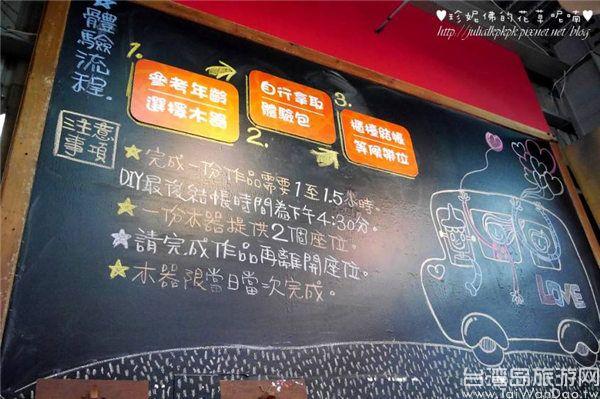 ♥珍妮佛的花草呢喃♥
http://julialkpkpk.pixnet.net/blog
★體驗流程.
1.
參考年齡
選擇木器
2.
自行拿取
體驗包
3.
櫃檯結帳
等候帶位
注意
事項
★完成一份作品需要1至1.5小時。
DIY最後結帳時間為下午4:30分。
★一份木器提供2個座位。
★請完成作品再離開座位。
★木器限當日當次完成。
LOVE
台湾岛旅游网
www.TaiWanDao.tw